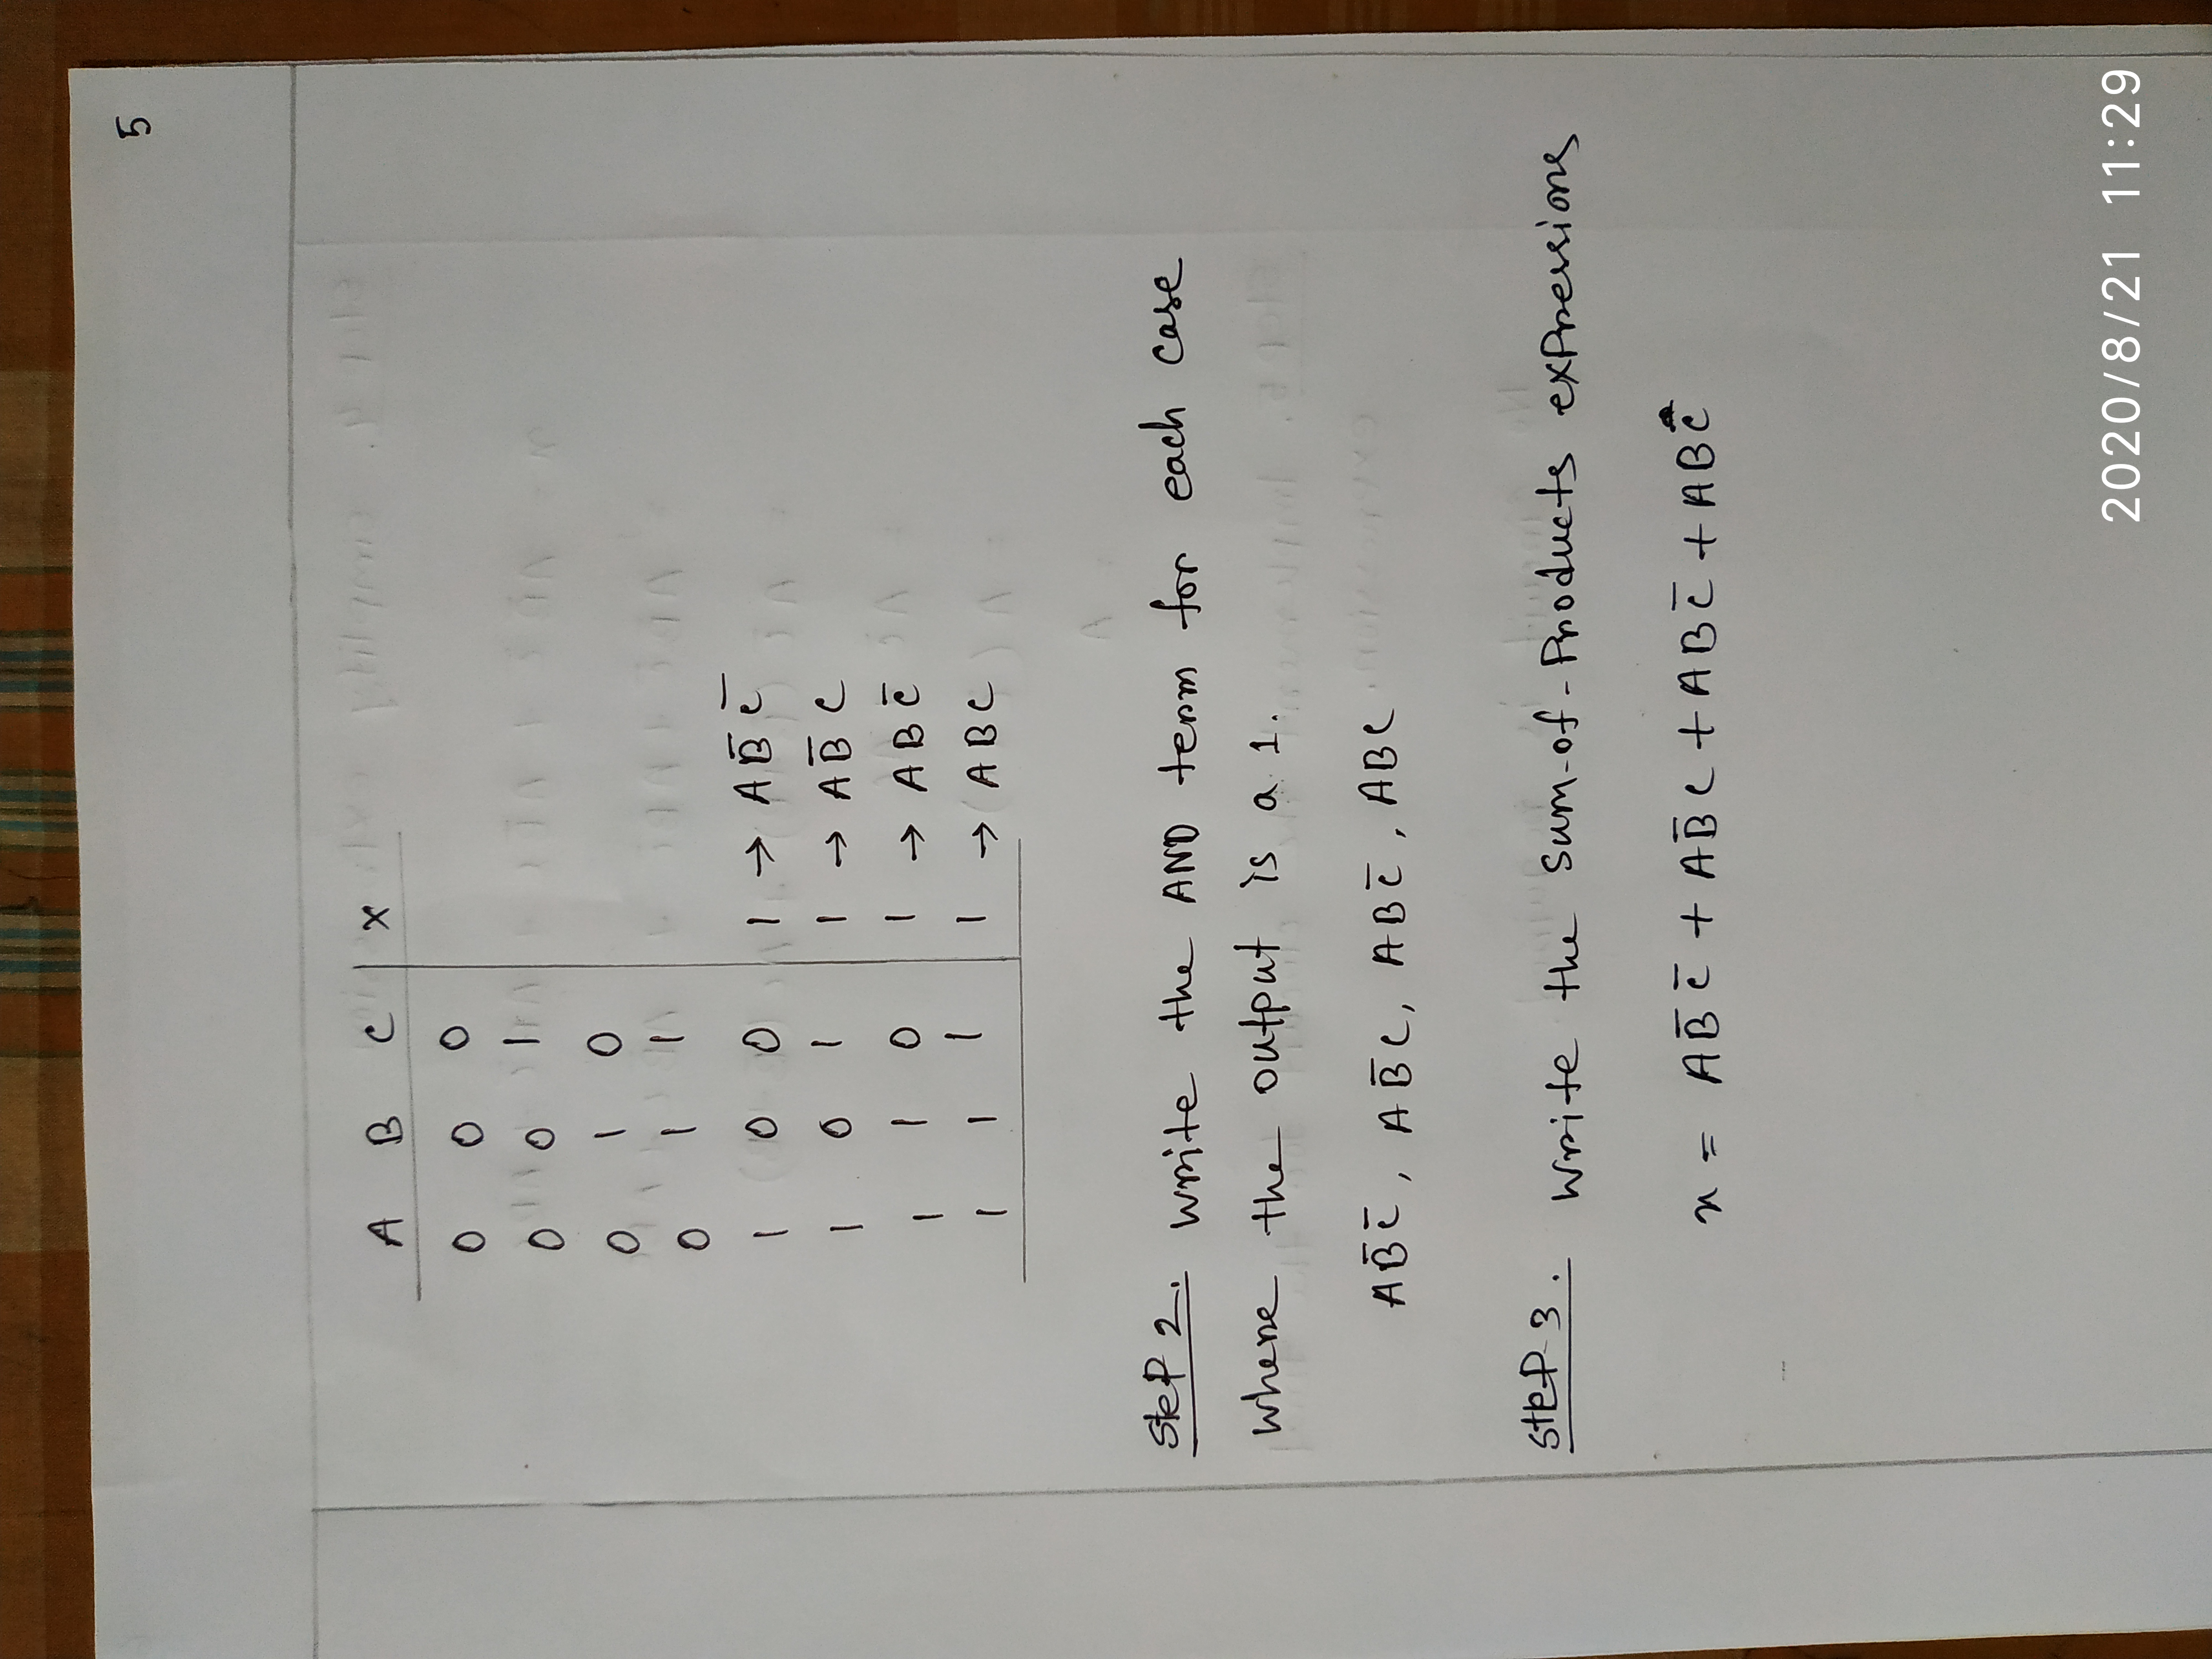 5
A B C X
0 0 0
0 0 1
0 1 0
0 1 1
1 0 0 1 → AB̅C̅
1 0 1 1 → AB̅C
1 1 0 1 → ABC̅
1 1 1 1 → ABC
Step 2. Write the AND term for each case
where the output is a 1.
AB̅C̅, AB̅C, ABC̅, ABC
Step-3. Write the Sum-of-Products expressions
x = AB̅C̅ + AB̅C + ABC̅ + ABC
2020/8/21 11:29